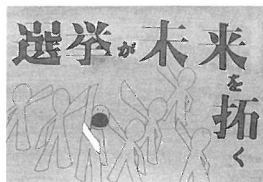 選挙が未来
を拓く